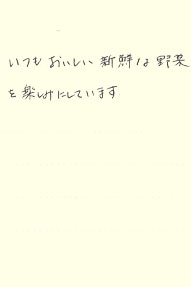 いつもおいしい新鮮な野菜
を楽しみにしています